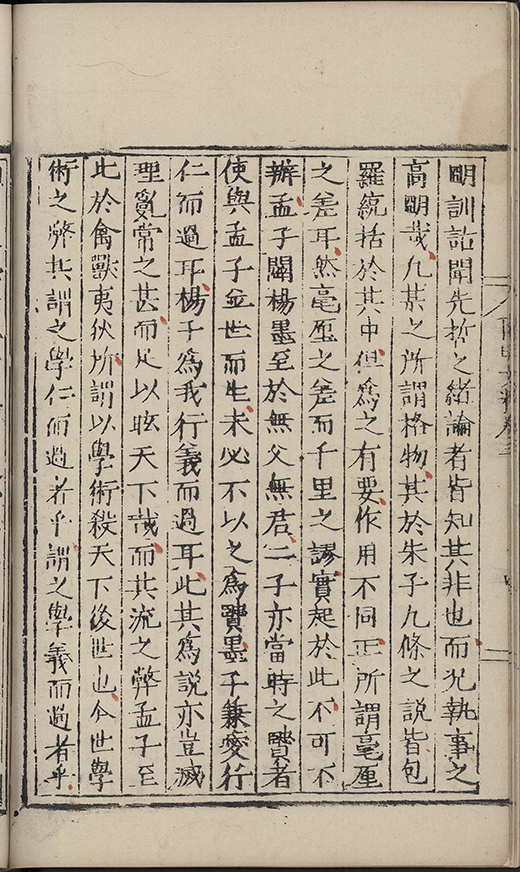 明訓詁聞先哲之緒論者皆知其非也而况執事之
高明哉凡某之所謂格物其於朱子九條之說皆包
羅統括於其中但爲之有要作用不同正所謂毫厘
之差耳然毫厘之差而千里之謬實起於此不可不
辨孟子闢楊墨至於無父無君二子亦當時之賢者
使與孟子並世而生未必不以之爲賢墨子兼愛行
仁而過耳楊子爲我行義而過耳此其爲說亦豈滅
理亂常之甚而足以眩天下哉而其流之弊孟子至
比於禽獸夷狄所謂以學術殺天下後世也今世學
術之弊其謂之學仁而過者乎謂之學義而過者乎